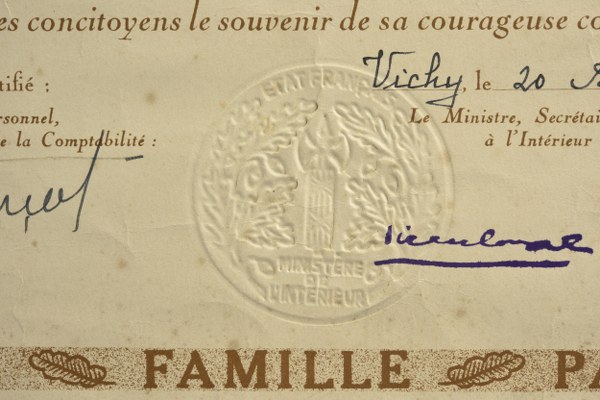 es concitoyens le souvenir de sa courageuse co
tifié :
Vichy, le 20
rsonnel,
e la Comptabilité :
Le Ministre, Secrétai
à l'Intérieur
ETAT FRANÇAIS
MINISTÈRE
DE
L'INTÉRIEUR
FAMILLE PA